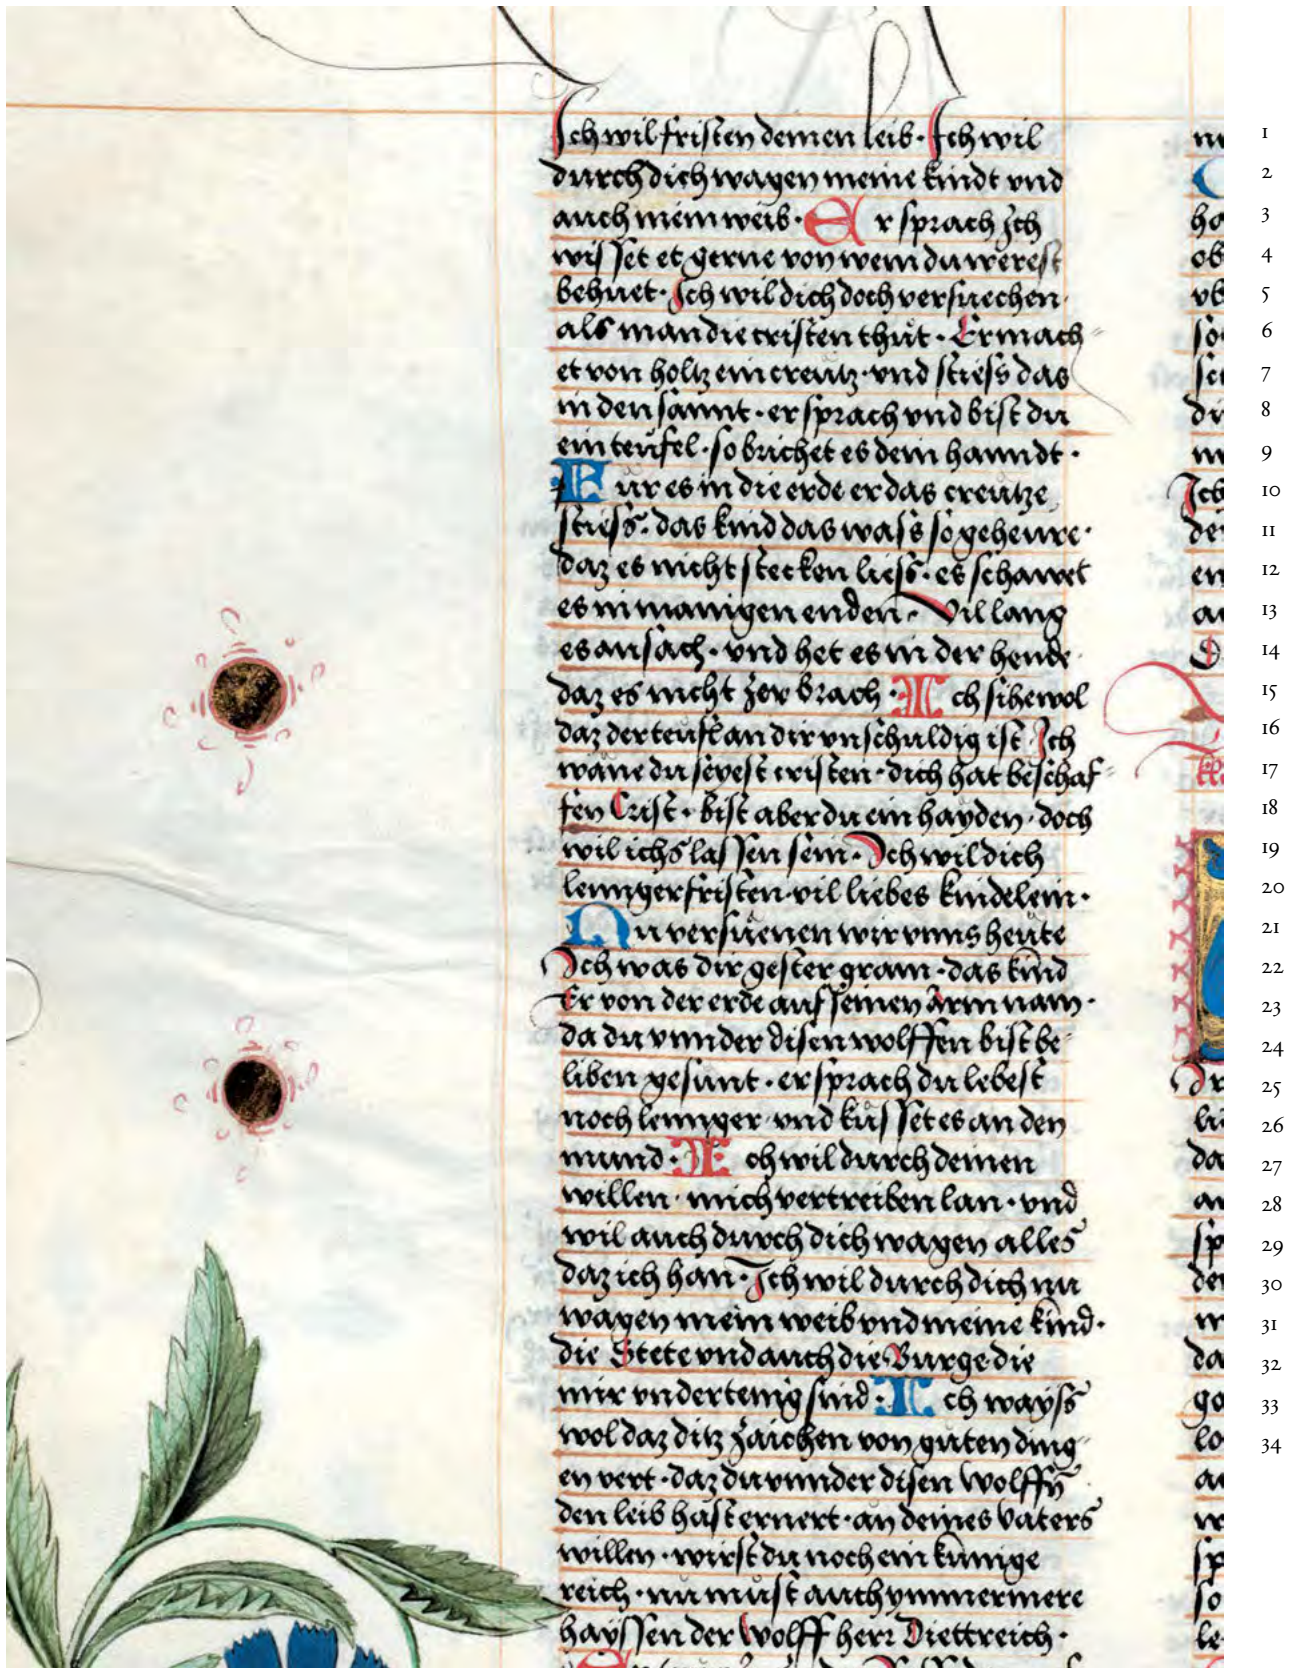 Ich wil fristen deinen leib · Ich wil
durch dich wagen meine kindt vnd
auch mein weib · Er sprach Ich
wisset et gerne von wem du werest
behuet · Ich wil dich doch versuechen
als man die cristen thůt · Er mach
et von holtz ein creutz · vnd stiess das
in den sannt · er sprach vnd bist du
ein teufel · so brichet es dein hanndt ·
Für es in die erde er das creutze
stiess · das kind das wass so geheure ·
daz es nicht stecken liess · es schawet
es in manigen enden · Vil lang
es ansach · vnd het es in der hende
daz es nicht zerbrach · Ich sihe wol
daz der teufl an dir vnschuldig ist Ich
wäne du seyest cristen · dich hat beschaf
fen Crist · bist aber du ein hayden · doch
wil ichs lassen sein · Ich wil dich
lennger fristen · vil liebes kindelein ·
Nu versuenen wir vnns heute
Ich was dir gester gram · das kind
Er von der erde auf seinen Arm nam ·
da du vnnder disen wolffen bist be
liben gesunt · er sprach du lebest
noch lennger · vnd küsset es an den
mund · Ich wil durch deinen
willen · mich vertreiben lan · vnd
wil auch durch dich wagen alles
daz ich han · Ich wil durch dich nu
wagen mein weib vnd meine kind ·
die Stete vnd auch die Burge die
mir vndertenig sind · Ich wayss
wol daz ditz zaichen von guten ding
en vert · daz du vnnder disen wolffn̄
den leib hast ernert · an deines Vaters
willen · wirst du noch ein künige
reich · nu must auch ymmermere
hayssen der Wolff herr Diettreich ·
1
2
3
4
5
6
7
8
9
10
11
12
13
14
15
16
17
18
19
20
21
22
23
24
25
26
27
28
29
30
31
32
33
34